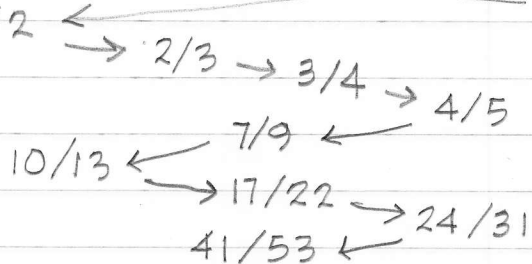 2 → 2/3 → 3/4 → 4/5
10/13 ← 7/9 ←
→ 17/22 → 24/31
41/53 ←